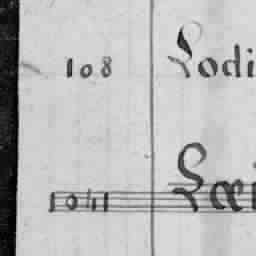 108 Lodi
1041 Læi